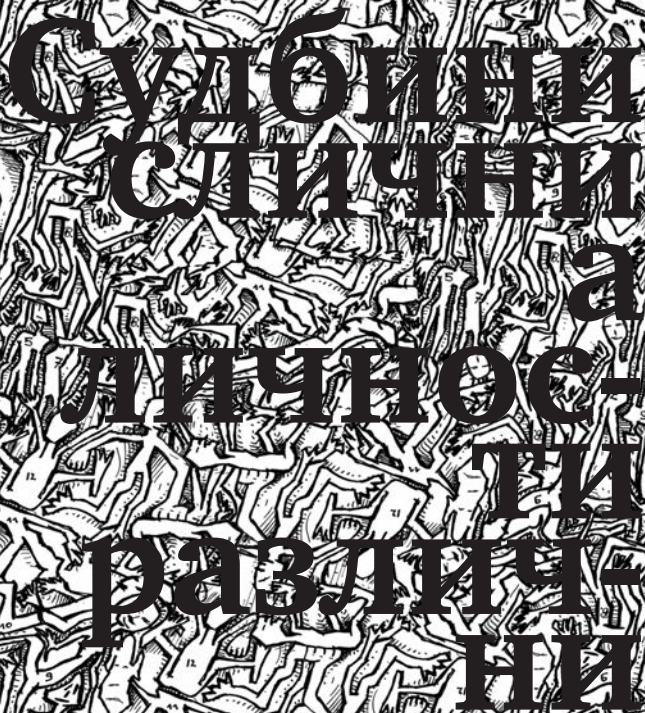 Судбини
слични
а
личнос-
ти
различ-
ни